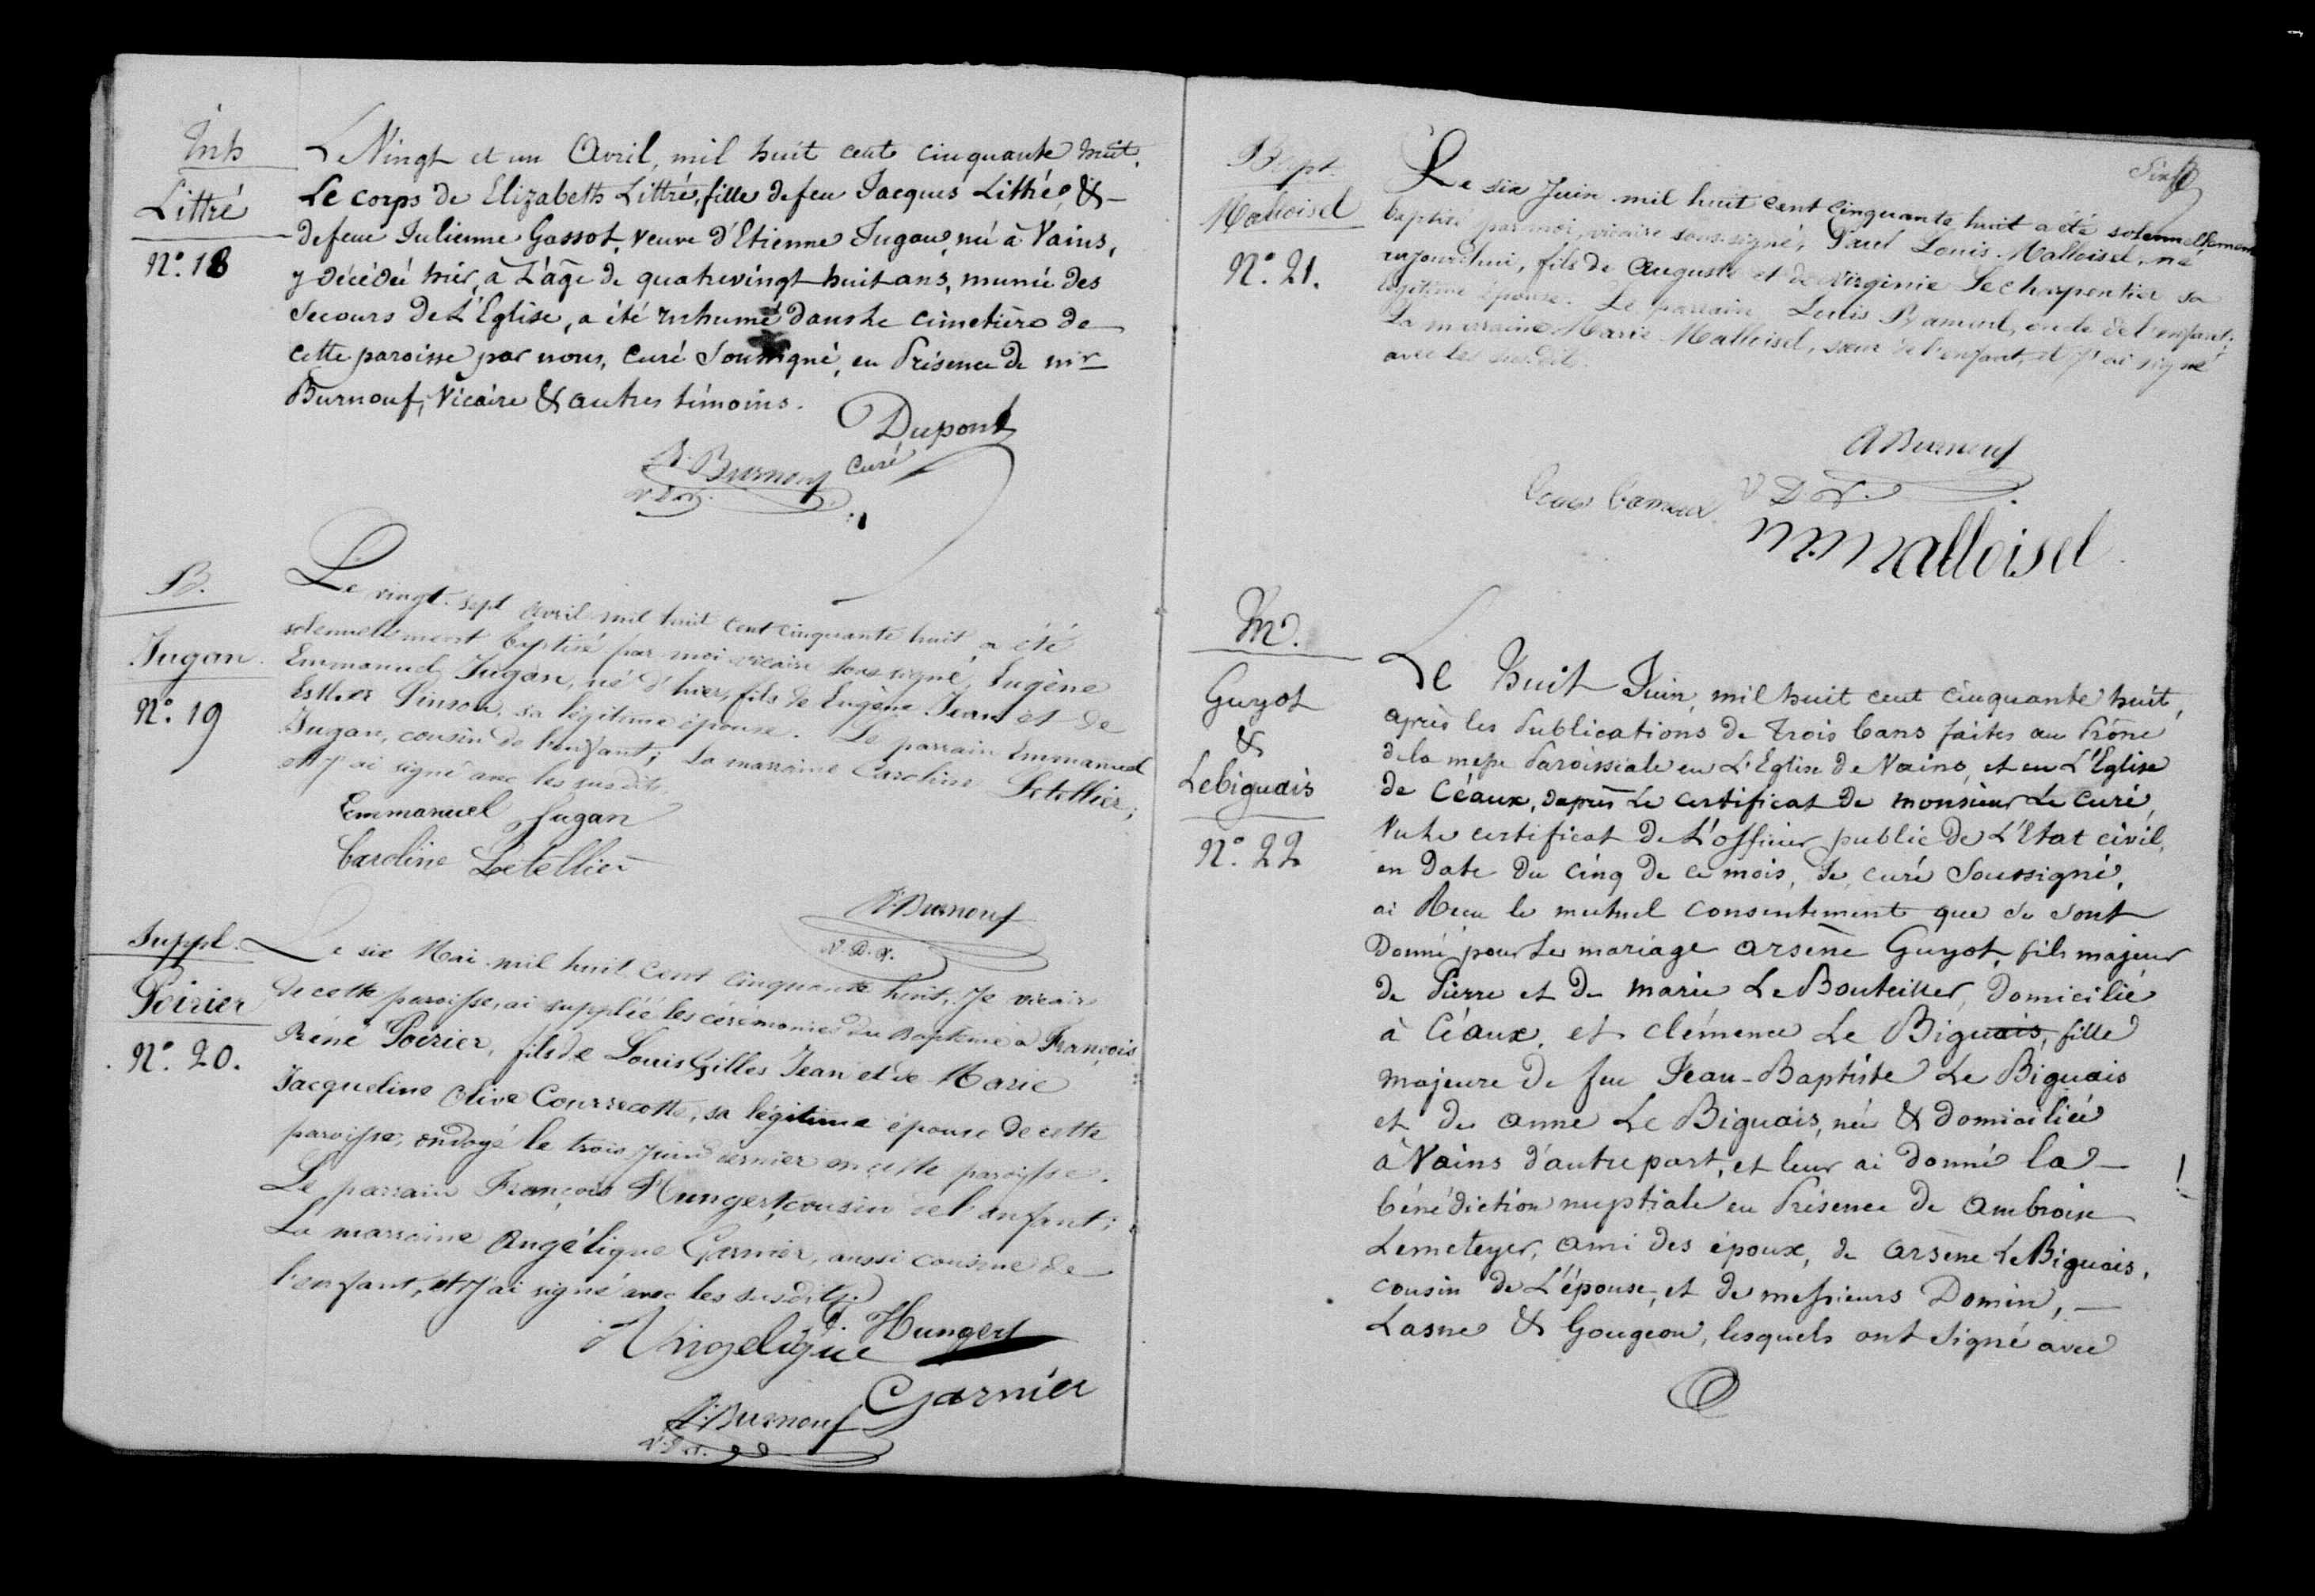 Inh
Littré
N°. 18
Le Vingt et un Avril, mil huit cent cinquante huit,
Le corps de Elizabeth Littré, fille de feu Jacques Littré, &
de feue Julienne Gassot, veuve d'Etienne Jugan, né à Vains,
y décédée hier, à L'âge de quatrevingt huit ans, munie des
Secours de L'Eglise, a été inhumé dans Le cimetière de
cette paroisse par nous, curé Soussigné, en Présence de mr
Burnouf, Vicaire & autres témoins.
Dupont
curé
A. Burnouf
B.
Jugan.
N°. 19
Le vingt-sept avril mil huit cent cinquante huit a été
solennellement baptisé par moi vicaire soussigné, Eugène
Emmanuel Jugan, né d'hier, fils de Eugène Jean et de
Esther Pinson, sa légitime épouse. Le parrain Emmanuel
Jugan, cousin de l'enfant; La marraine Caroline Letellier;
et j'ai signé avec les susdits.
Emmanuel Jugan
Caroline Letellier
A. Burnouf
Suppl.
Poirier
N°. 20.
Le six Mai mil huit cent cinquante huit, Je vicaire
de cette paroisse, ai suppléé les cérémonies du Baptême à François
Réné Poirier, fils de Louis Gilles Jean et de Marie
Jacqueline Olive Courrecotte, sa légitime épouse de cette
paroisse, ondoyé le trois Juin dernier en cette paroisse.
Le parrain François Hungert, cousin de l'enfant;
La marraine Angélique Garnier, aussi cousine de
l'enfant, et j'ai signé avec les susdits.
f. Hungert
Angelique
Garnier
A. Burnouf
Bapt.
Malloisel
N°. 21.
Le six Juin mil huit cent cinquante huit a été solennellement
baptisé par moi, vicaire soussigné, Paul Louis Malloisel, né
aujourd'hui, fils de Auguste et de Virginie Lecharpentier sa
légitime épouse. Le parrain, Louis Bamard, oncle de l'enfant;
La marraine Marie Malloisel, sœur de l'enfant, et j'ai signé
avec les susdits.
A Burnouf
M. Malloisel
M.
Guyot
&
Lebiguais
N°. 22
Le huit Juin, mil huit cent cinquante huit,
après les Publications de Trois bans faites au Prône
de la messe Paroissiale en L'Eglise de Vains, et en L'Eglise
de Céaux, d'après Le certificat de monsieur Le curé,
Vu Le certificat de L'officier public de L'Etat civil,
en date du cinq de ce mois, Je, curé Soussigné,
ai Reçu le mutuel consentement que se sont
Donné pour Le mariage arsène Guyot, fils majeur
de Pierre et de marie Le Bouteiller, Domicilié
à Céaux, et clémence Le Biguais, fille
majeure de feu Jean-Baptiste Le Biguais
et de anne Le Biguais, née & domiciliée
à Vains d'autre part, et leur ai donné la
bénédiction nuptiale en Présence de ambroise
Lemeteyer, ami des époux, de arsène Le Biguais,
cousin de L'épouse, et de messieurs Domin,
Lasne & Gougeon, lesquels ont Signé avec